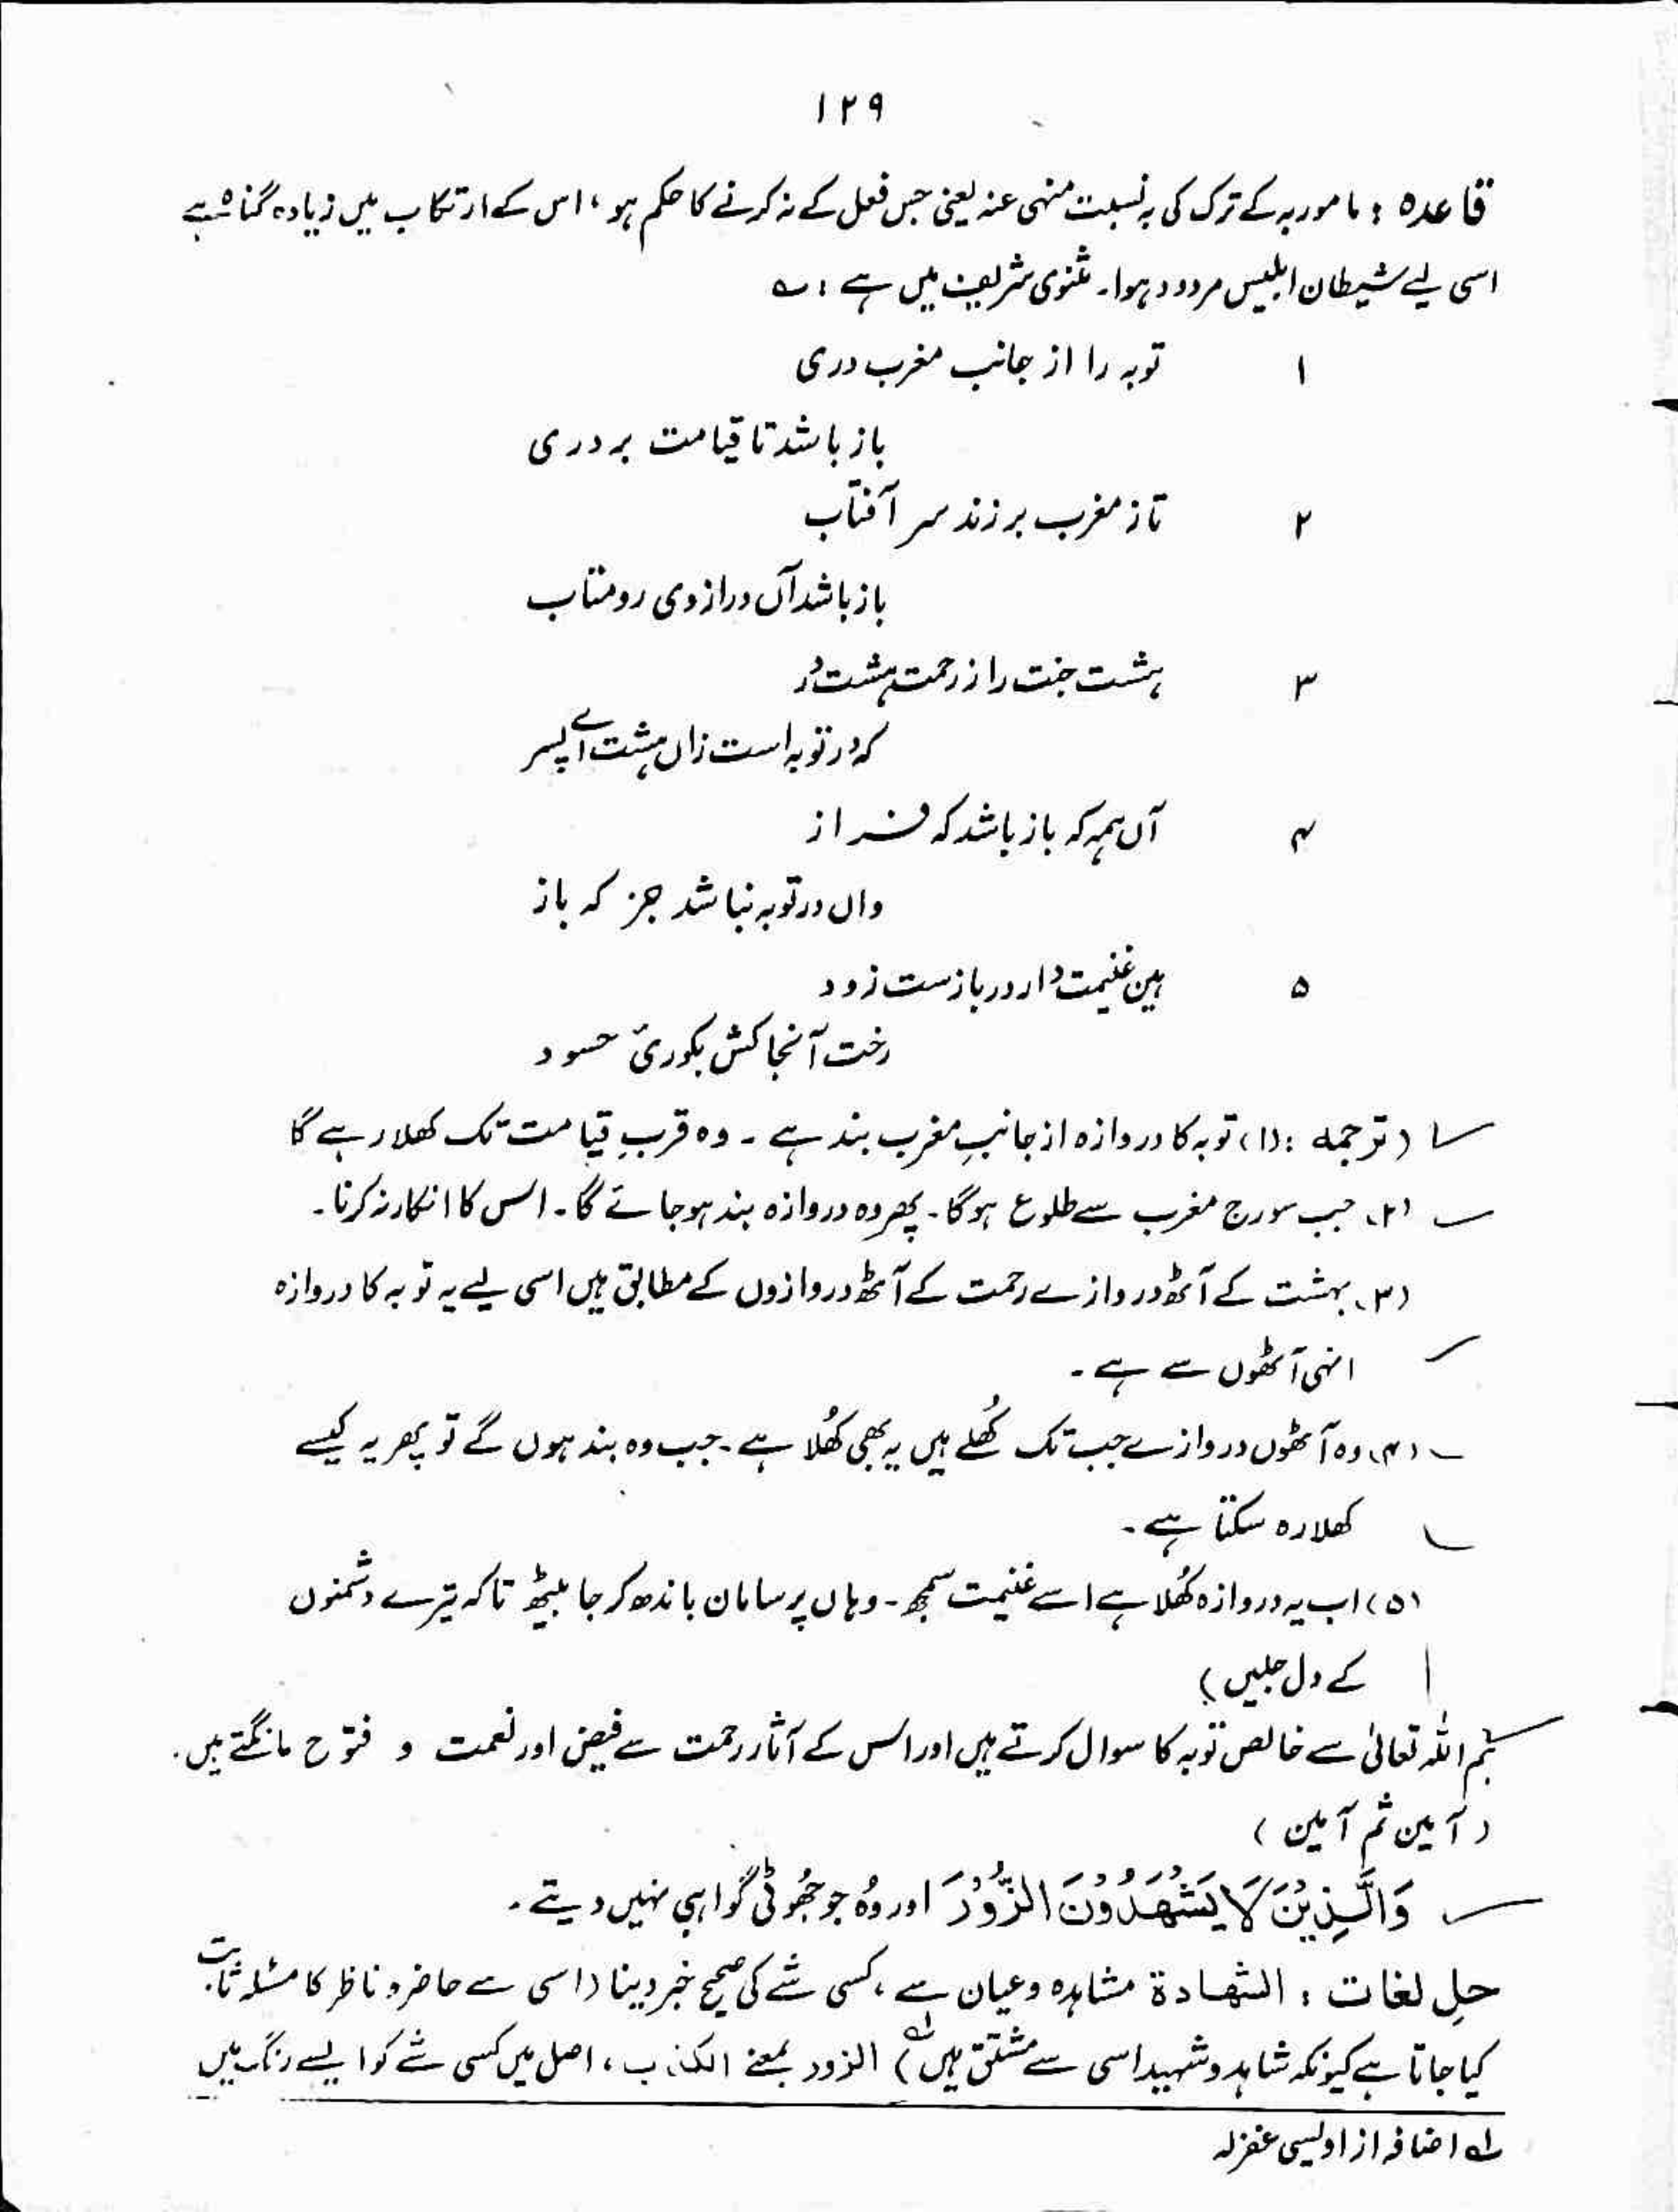 ۱۲۹
قاعدہ : مامور بہ کے ترک کی بہ نسبت منہی عنہ یعنی جس فعل کے نہ کرنے کا حکم ہو ، اس کے ارتکاب میں زیادہ گناہ ہے
اسی لیے شیطان ابلیس مردود ہوا۔ مثنوی شریف میں ہے : ؎
۱ توبہ را از جانب مغرب دری
باز باشد تا قیامت بر دری
۲ تاز مغرب بر زند سر آفتاب
باز باشد آں در از وی رو متاب
۳ ہشت جنت را ز رحمت ہشت دُر
کہ در توبہ است زاں ہشت اے پسر
۴ آں ہمہ کہ باز باشد کہ فراز
واں در توبہ نباشد جز کہ باز
۵ ہین غنیمت دار در باز ست زود
رخت آنجا کش بکوریٔ حسود
(ترجمہ : (۱) توبہ کا دروازہ از جانبِ مغرب بند ہے ۔ وہ قربِ قیامت تک کھلا رہے گا
(۲) جب سورج مغرب سے طلوع ہوگا۔ پھر وہ دروازہ بند ہوجائے گا۔ اس کا انکار نہ کرنا۔
(۳) بہشت کے آٹھ دروازے رحمت کے آٹھ دروازوں کے مطابق ہیں اسی لیے یہ توبہ کا دروازہ
انہی آٹھوں سے ہے ۔
(۴) وہ آٹھوں دروازے جب تک کُھلے ہیں یہ بھی کُھلا ہے ۔ جب وہ بند ہوں گے تو پھر یہ کیسے
کھلا رہ سکتا ہے ۔
(۵) اب یہ دروازہ کُھلا ہے اسے غنیمت سمجھ ۔ وہاں پر سامان باندھ کر جا بیٹھ تاکہ تیرے دشمنوں
کے دل جلیں)
ہم اللہ تعالیٰ سے خالص توبہ کا سوال کرتے ہیں اور اس کے آثار رحمت سے فیض اور نعمت و فتوح مانگتے ہیں۔
(آمین ثم آمین)
وَالَّذِیْنَ لَا یَشْھَدُوْنَ الزُّوْرَ اور وُہ جو جُھوٹی گواہی نہیں دیتے ۔
حلِ لغات : الشھادۃ مشاہدہ و عیان سے ، کسی شے کی صحیح خبر دینا (اسی سے حاضر و ناظر کا مسئلہ ثابت
کیا جاتا ہے کیونکہ شاہد و شہید اسی سے مشتق ہیں لہ) الزور بمعنے الکذب ، اصل میں کسی شے کو ایسے رنگ میں
لہ اضافہ از اویسی غفرلہ